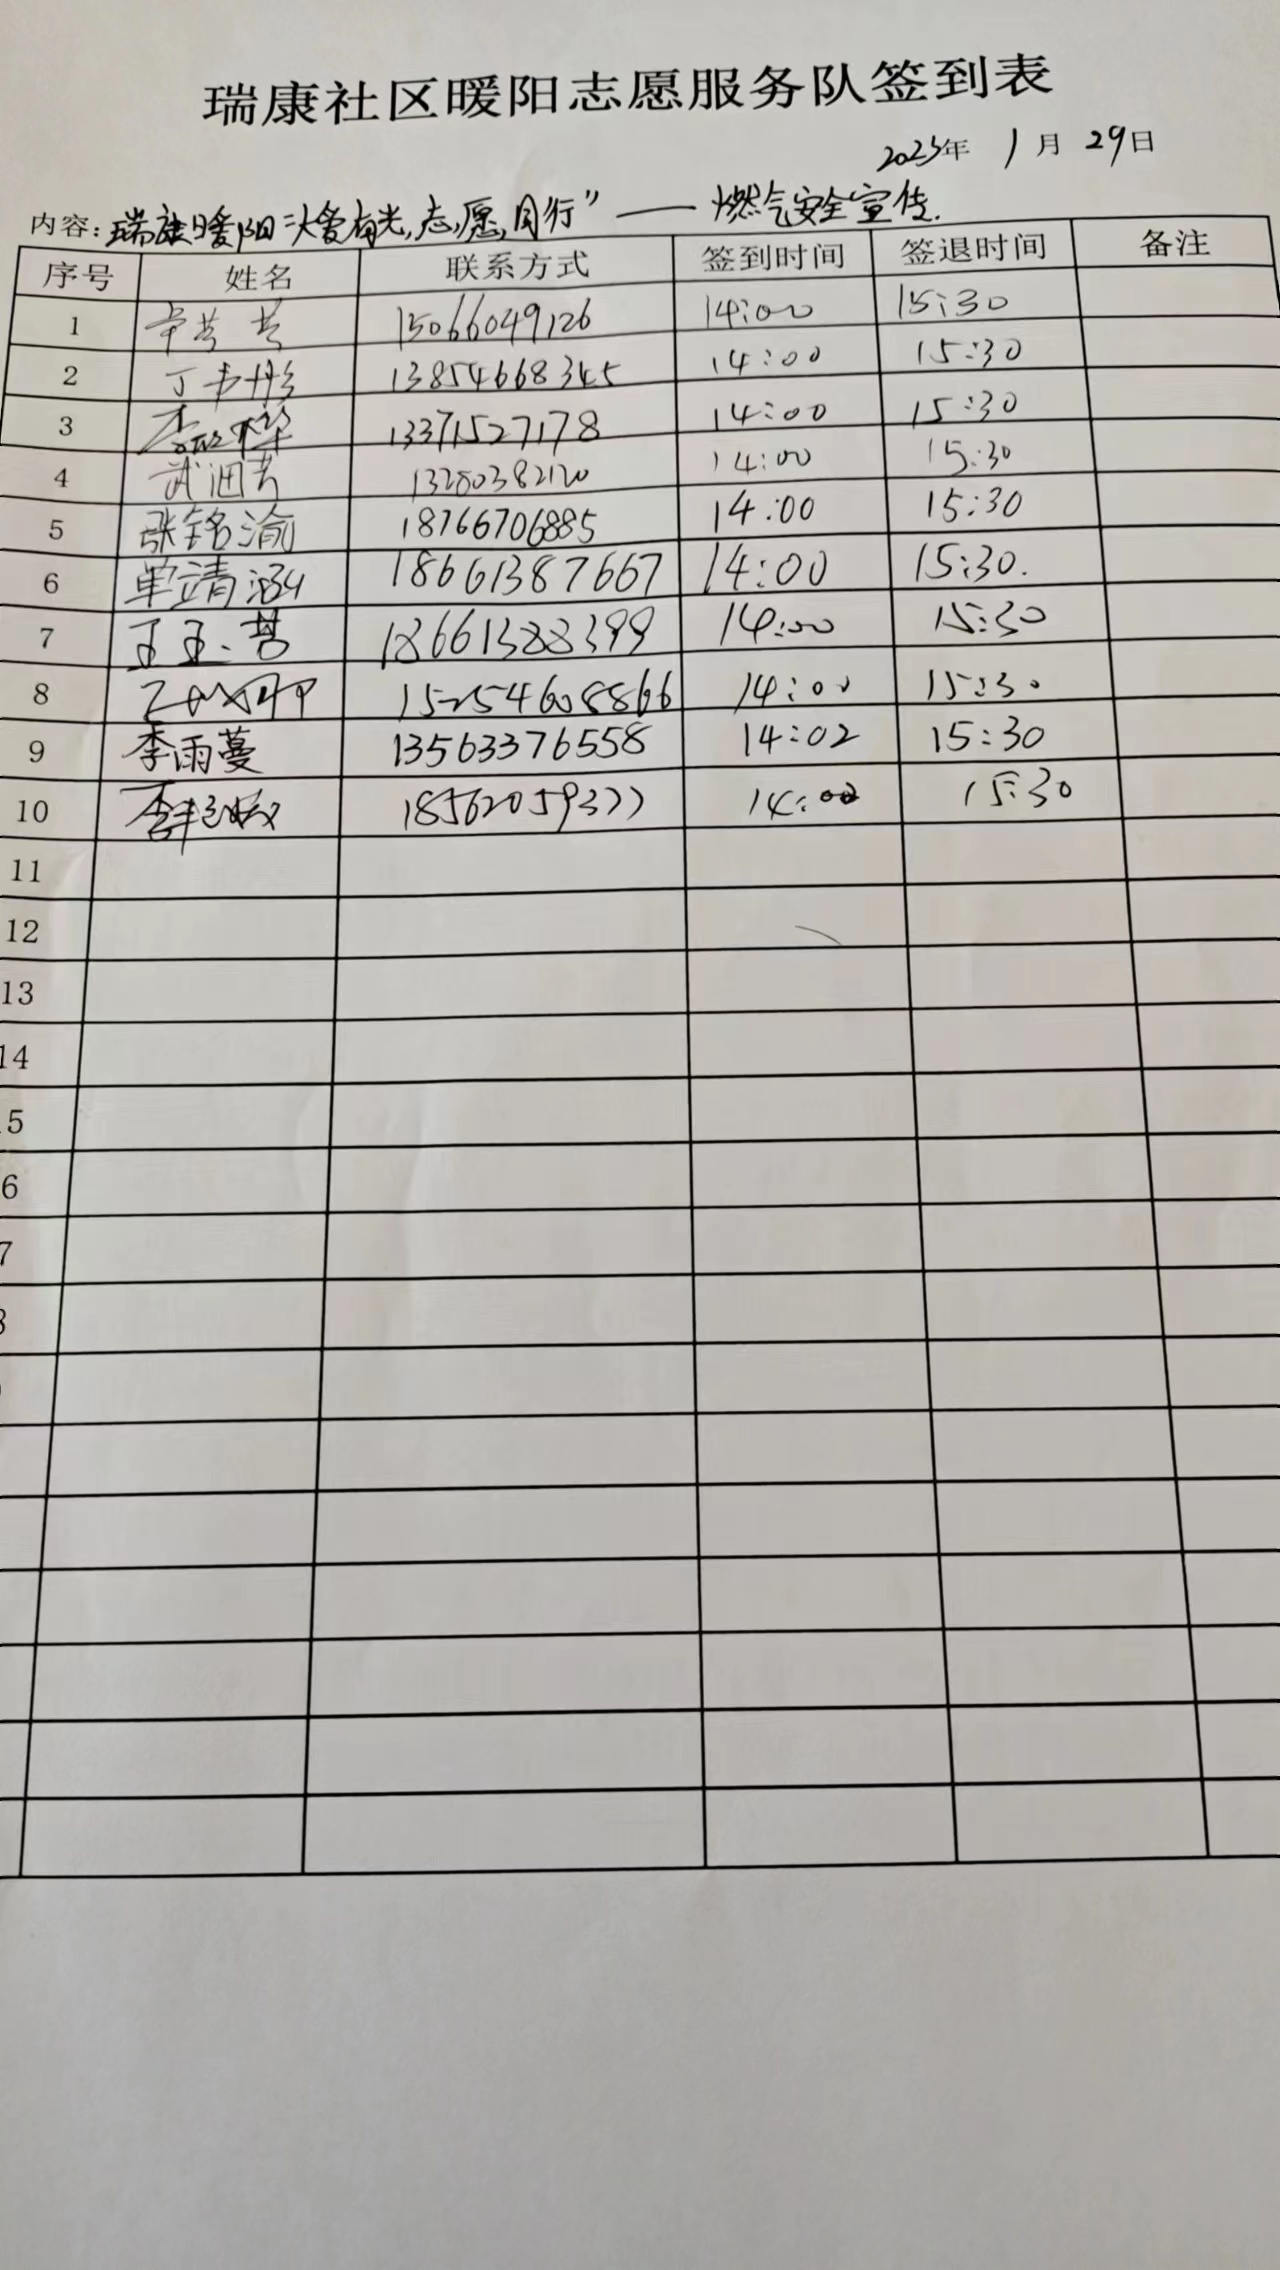 瑞康社区暖阳志愿服务队签到表
2023年 1月 29日
内容：瑞康暖阳 大爱有光，志愿同行”——燃气安全宣传.
序号 姓名 联系方式 签到时间 签退时间 备注
1 15066049126 14:00 15:30
2 丁书彤 13854668345 14:00 15:30
3 李 13371527178 14:00 15:30
4 武 13280382120 14:00 15:30
5 张铭渝 18766706885 14:00 15:30
6 单靖涵 18661387667 14:00 15:30.
7 王玉 18661388399 14:00 15:30
8 14:00 15:30
9 李雨蔓 13563376558 14:02 15:30
10 李 14:00 15:30
11
12
13
14
15
6
7
8